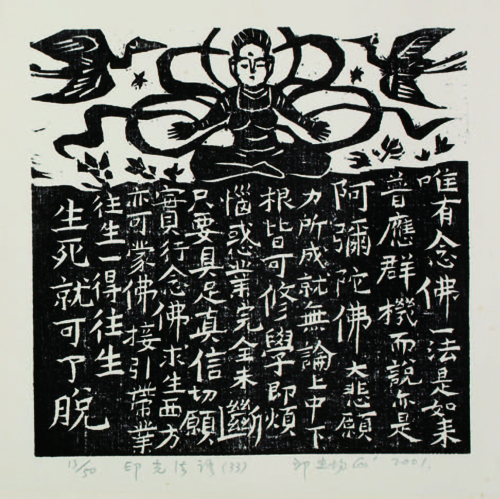 唯有念佛一法是如来
普應群機而説亦是
阿彌陀佛大悲願
力所成就無論上中下
根皆可修學即煩
惱惑業完全未斷
只要具足真信切願
實行念佛求生西方
亦可蒙佛接引帶業
往生一得往生
生死就可了脫
13/50 印光法語(33) 2001.